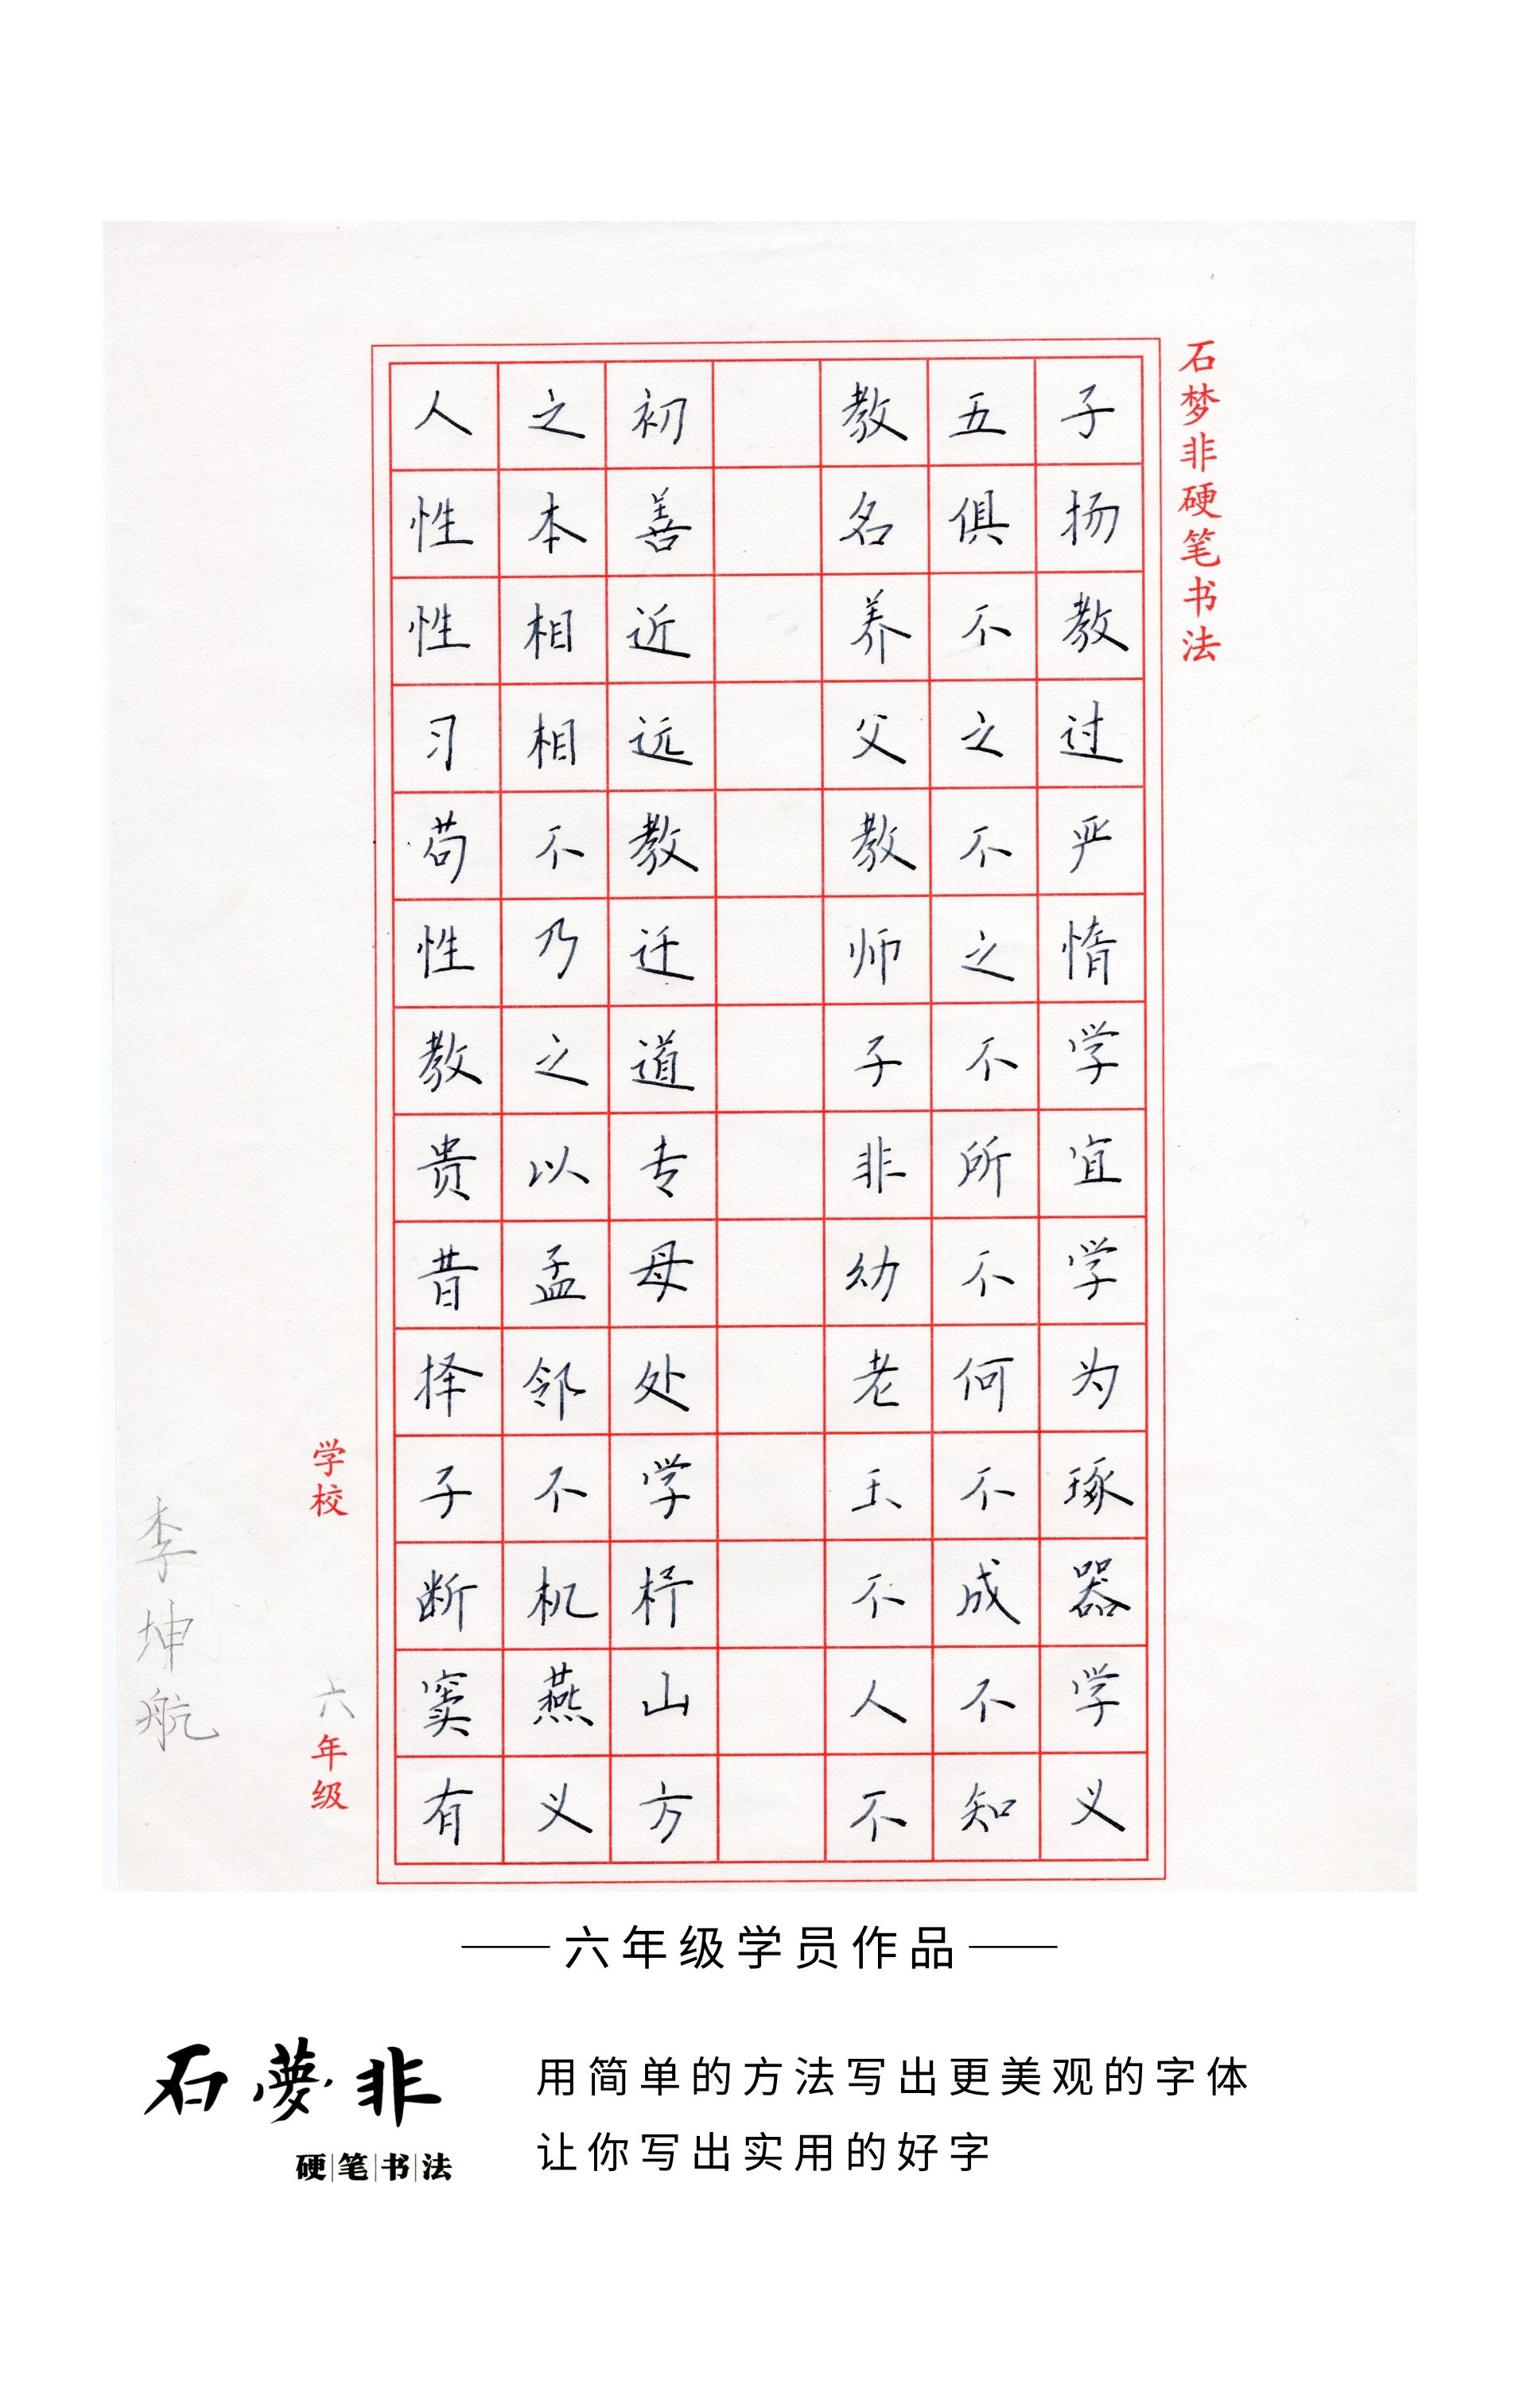 石梦非硬笔书法
人之初 教五子
性本善 名俱扬
性相近 养不教
习相远 父之过
苟不教 教不严
性乃迁 师之惰
教之道 子不学
贵以专 非所宜
昔孟母 幼不学
择邻处 老何为
子不学 玉不琢
断机杼 不成器
窦燕山 人不学
有义方 不知义
学校
六年级
李坤航
六年级学员作品
石夢非
硬笔书法
用简单的方法写出更美观的字体
让你写出实用的好字